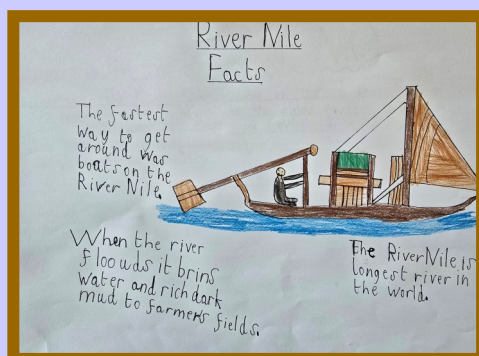 River Nile
Facts
The fastest
way to get
around was
boats on the
River Nile.
When the river
floowds it brins
water and rich dark
mud to farmers fields.
The River Nile is
longest river in
the world.